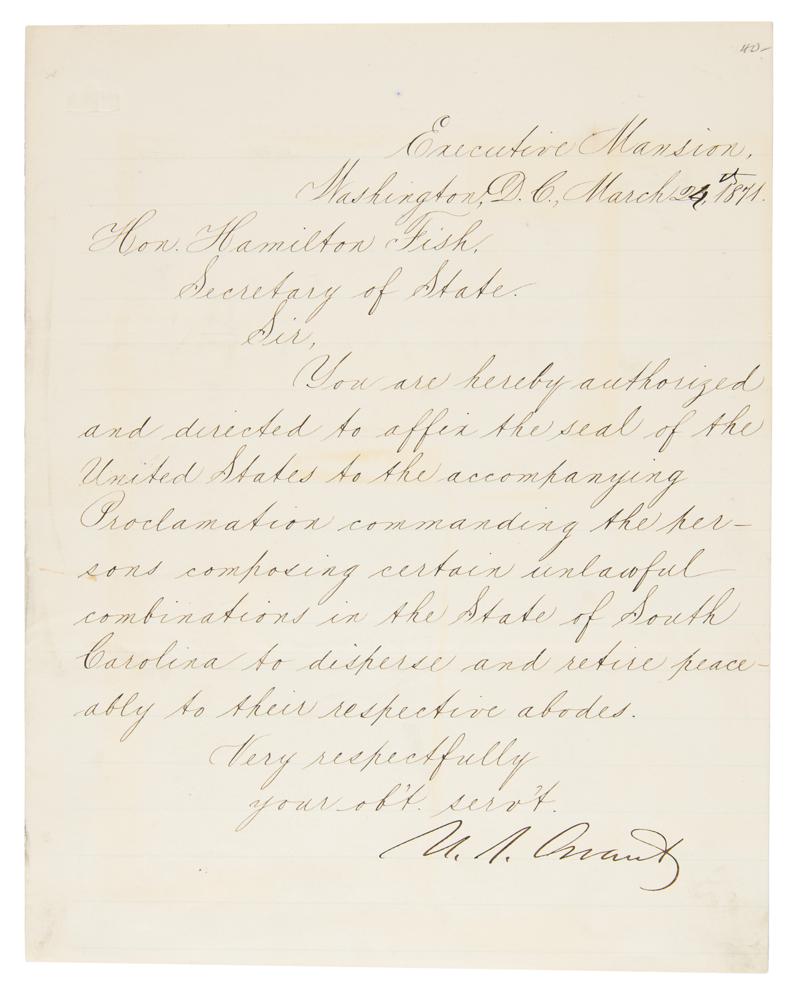 40-
Executive Mansion,
Washington, D.C., March 24th, 1871.
Hon. Hamilton Fish,
Secretary of State.
Sir,
You are hereby authorized
and directed to affix the seal of the
United States to the accompanying
Proclamation commanding the per-
sons composing certain unlawful
combinations in the State of South
Carolina to disperse and retire peace-
ably to their respective abodes.
Very respectfully
your ob't. serv't.
U. S. Grant